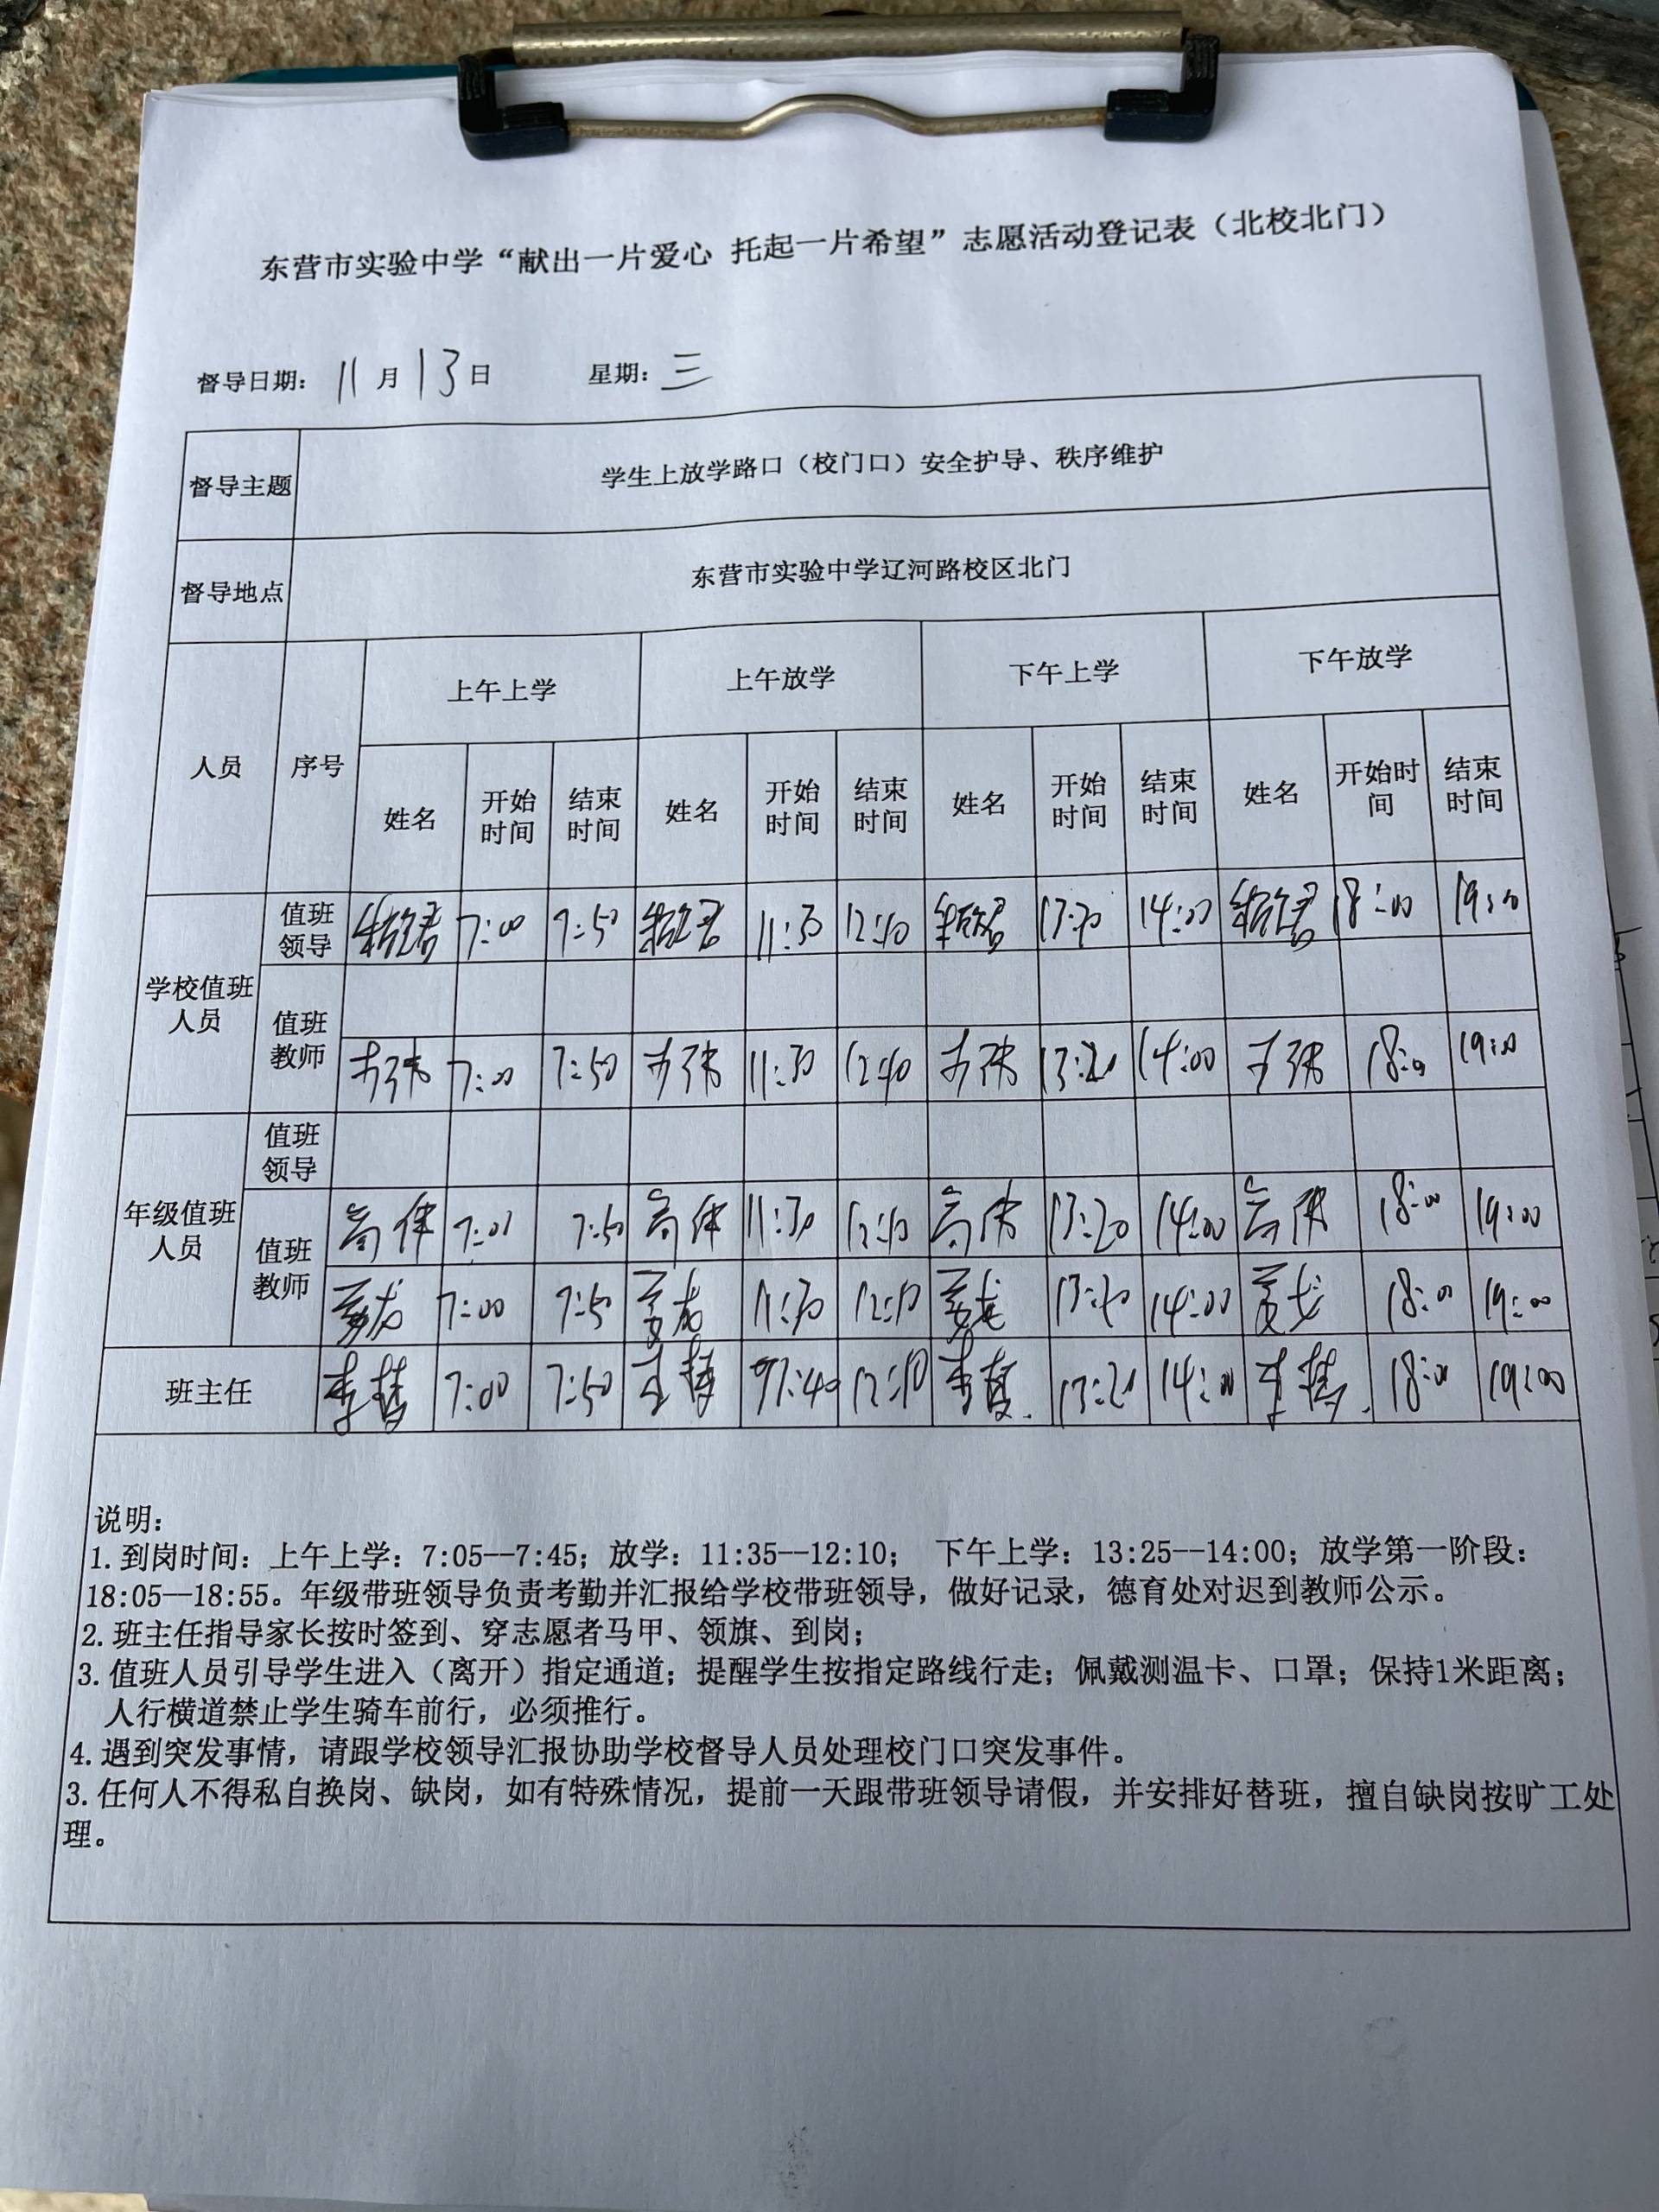 东营市实验中学“献出一片爱心 托起一片希望”志愿活动登记表（北校北门）
督导日期： 11 月 13 日 星期：三
督导主题 学生上放学路口（校门口）安全护导、秩序维护
督导地点 东营市实验中学辽河路校区北门
人员 序号 上午上学 上午放学 下午上学 下午放学
姓名 开始时间 结束时间 姓名 开始时间 结束时间 姓名 开始时间 结束时间 姓名 开始时间 结束时间
学校值班人员
值班领导 7:00 7:50 11:30 12:10 14:00 18:00 19:00
值班教师 7:00 7:50 11:30 12:10 13:20 14:00 18:00 19:00
年级值班人员
值班领导
值班教师 高伟 7:50 高伟 11:30 12:10 高伟 13:20 14:00 高伟 18:00 19:00
7:00 7:50 11:30 12:10 14:00 18:00 19:00
班主任 7:00 7:50 12:10 13:20 14:00 18:00 19:00
说明：
1.到岗时间：上午上学：7:05—7:45；放学：11:35—12:10； 下午上学：13:25—14:00；放学第一阶段：
18:05—18:55。年级带班领导负责考勤并汇报给学校带班领导，做好记录，德育处对迟到教师公示。
2.班主任指导家长按时签到、穿志愿者马甲、领旗、到岗；
3.值班人员引导学生进入（离开）指定通道；提醒学生按指定路线行走；佩戴测温卡、口罩；保持1米距离；
人行横道禁止学生骑车前行，必须推行。
4.遇到突发事情，请跟学校领导汇报协助学校督导人员处理校门口突发事件。
3.任何人不得私自换岗、缺岗，如有特殊情况，提前一天跟带班领导请假，并安排好替班，擅自缺岗按旷工处
理。